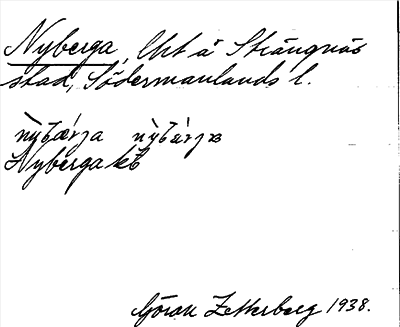 Nyberga, Uht å Strängnäs
stad, Södermanlands l.
Nyberga kb
Göran Zetterberg 1938.